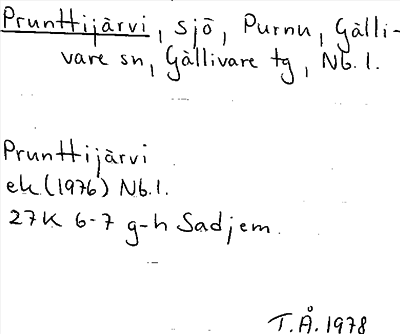 Prunttijärvi, sjö, Purnu, Gälli-
vare sn, Gällivare tg, Nb.l.
Prunttijärvi
ek (1976) Nb.l.
27K 6-7 g-h Sadjem.
T.Å. 1978